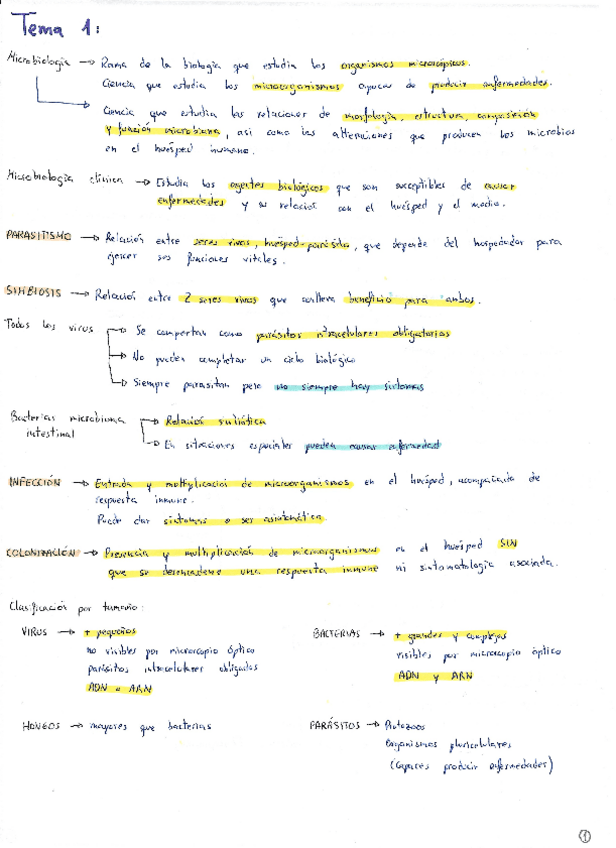 Tema 1:
Microbiología → Rama de la biología que estudia los organismos microscópicos.
Ciencia que estudia los microorganismos capaces de producir enfermedades.
Ciencia que estudia las relaciones de morfología, estructura, composición
y función microbiana, así como las alteraciones que producen los microbios
en el huésped humano.
Microbiología clínica → Estudia los agentes biológicos que son susceptibles de causar
enfermedades y su relación con el huésped y el medio.
PARASITISMO → Relación entre seres vivos, huésped-parásito, que depende del hospedador para
ejercer sus funciones vitales.
SIMBIOSIS → Relación entre 2 seres vivos que conlleva beneficio para ambos.
Todos los virus → Se comportan como parásitos intracelulares obligatorios
→ No pueden completar un ciclo biológico
→ Siempre parasitan pero no siempre hay síntomas
Bacterias microbioma → Relación simbiótica
intestinal → En situaciones especiales pueden causar enfermedad
INFECCIÓN → Entrada y multiplicación de microorganismos en el huésped, acompañada de
respuesta inmune.
Puede dar síntomas o ser asintomática.
COLONIZACIÓN → Presencia y multiplicación de microorganismos en el huésped SIN
que se desencadene una respuesta inmune ni sintomatología asociada.
Clasificación por tamaño:
VIRUS → + pequeños
no visibles por microscopio óptico
parásitos intracelulares obligados
ADN o ARN
BACTERIAS → + grandes y complejas
visibles por microscopio óptico
ADN y ARN
HONGOS → mayores que bacterias
PARÁSITOS → Protozoos
Organismos pluricelulares
(Capaces producir enfermedades)
1